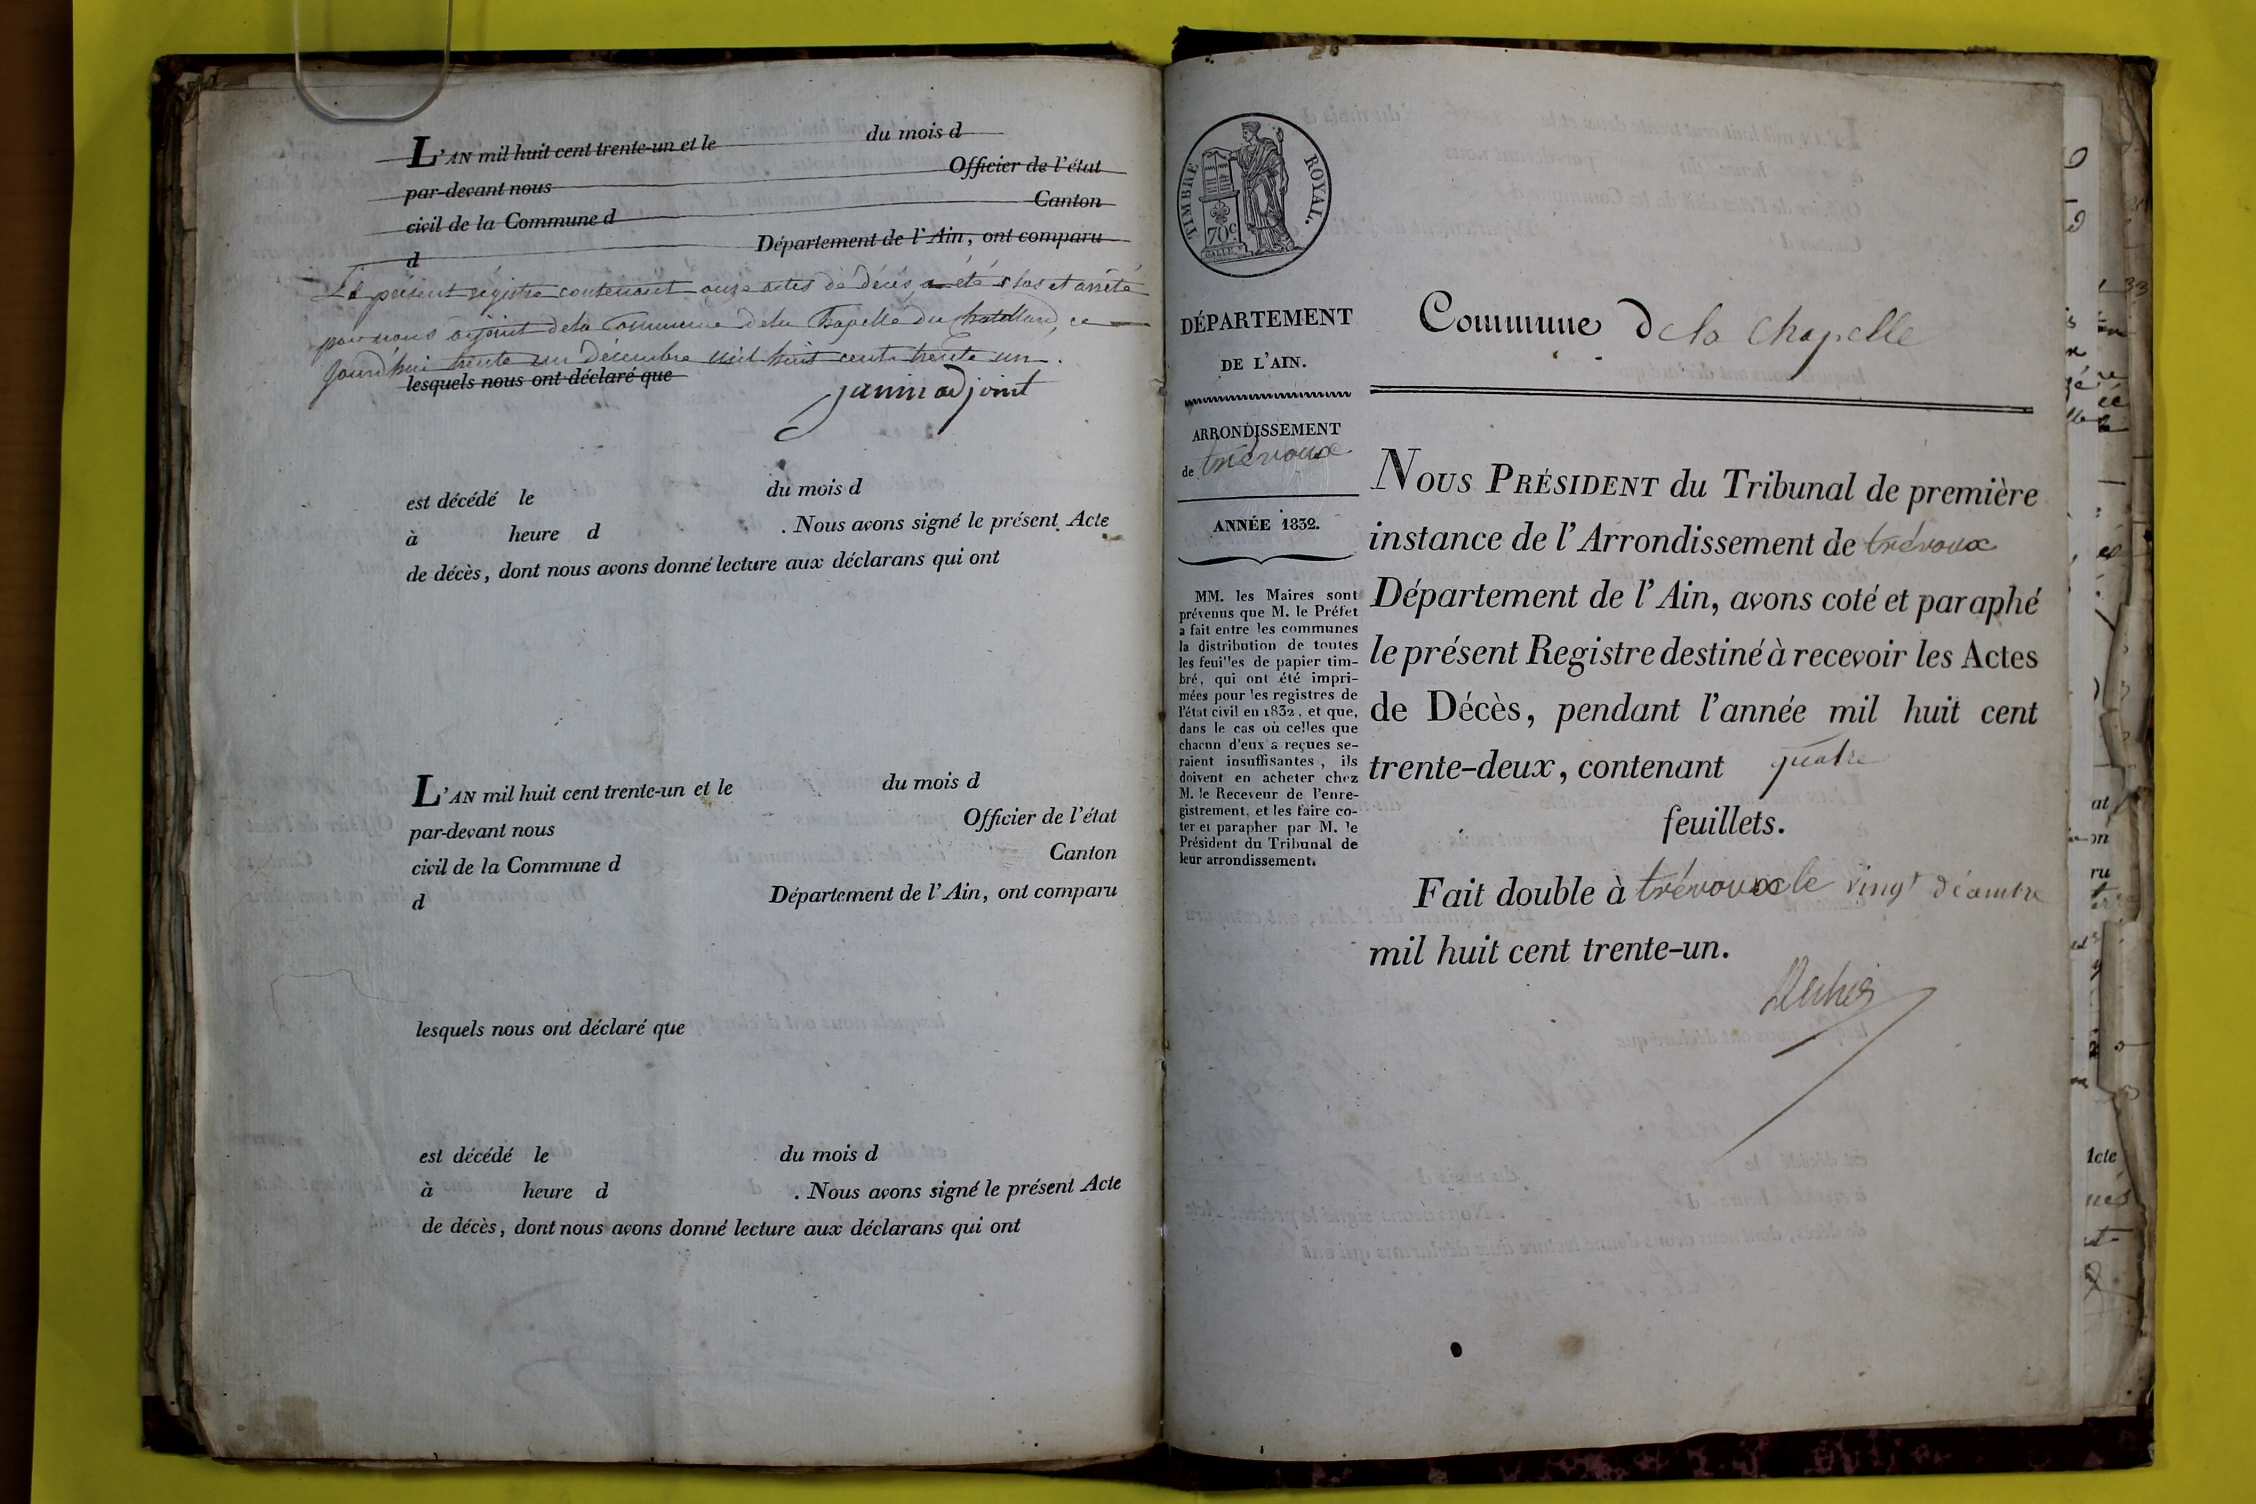 L'AN mil huit cent trente-un et le du mois d
par-devant nous Officier de l'état
civil de la Commune d Canton
d Département de l'Ain, ont comparu
Le présent régistre contenant onze actes de décès a été clos et arrêté
par nous adjoint de la Commune de la Chapelle du Chatellard, ce
jourd'hui trente un Décembre mil huit cent trente un.
lesquels nous ont déclaré que
janin adjoint
est décédé le du mois d
à heure d . Nous avons signé le présent Acte
de décès, dont nous avons donné lecture aux déclarans qui ont
L'AN mil huit cent trente-un et le du mois d
par-devant nous Officier de l'état
civil de la Commune d Canton
d Département de l'Ain, ont comparu
lesquels nous ont déclaré que
est décédé le du mois d
à heure d . Nous avons signé le présent Acte
de décès, dont nous avons donné lecture aux déclarans qui ont
TIMBRE ROYAL.
70c
DÉPARTEMENT
DE L'AIN.
ARRONDISSEMENT
de trévoux
ANNÉE 1832.
MM. les Maires sont
prévenus que M. le Préfet
a fait entre les communes
la distribution de toutes
les feuilles de papier tim-
bré, qui ont été impri-
mées pour les registres de
l'état civil en 1832, et que,
dans le cas où celles que
chacun d'eux a reçues se-
raient insuffisantes, ils
doivent en acheter chez
M. le Receveur de l'enre-
gistrement, et les faire co-
ter et parapher par M. le
Président du Tribunal de
leur arrondissement.
Commune de la Chapelle
NOUS PRÉSIDENT du Tribunal de première
instance de l'Arrondissement de trévoux
Département de l'Ain, avons coté et paraphé
le présent Registre destiné à recevoir les Actes
de Décès, pendant l'année mil huit cent
trente-deux, contenant quatre
feuillets.
Fait double à trévoux le vingt décembre
mil huit cent trente-un.